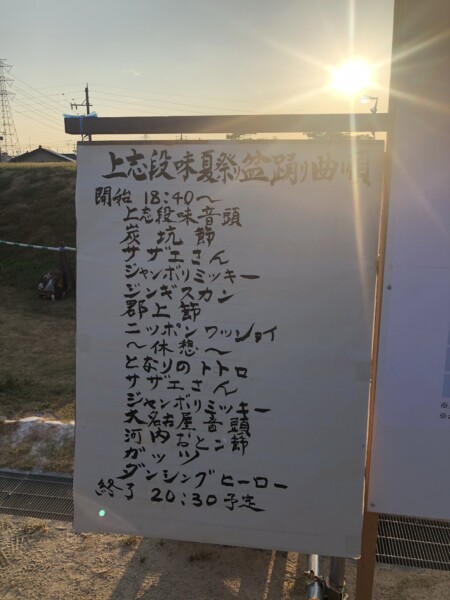 上志段味夏祭り盆踊り曲順
開始 18:40〜
上志段味音頭
炭坑節
サザエさん
ジャンボリミッキー
ジンギスカン
郡上節
ニッポンワッショイ
〜休憩〜
となりのトトロ
サザエさん
ジャンボリミッキー
大名古屋音頭
河内おとこ節
ガッツ
ダンシングヒーロー
終了 20:30予定